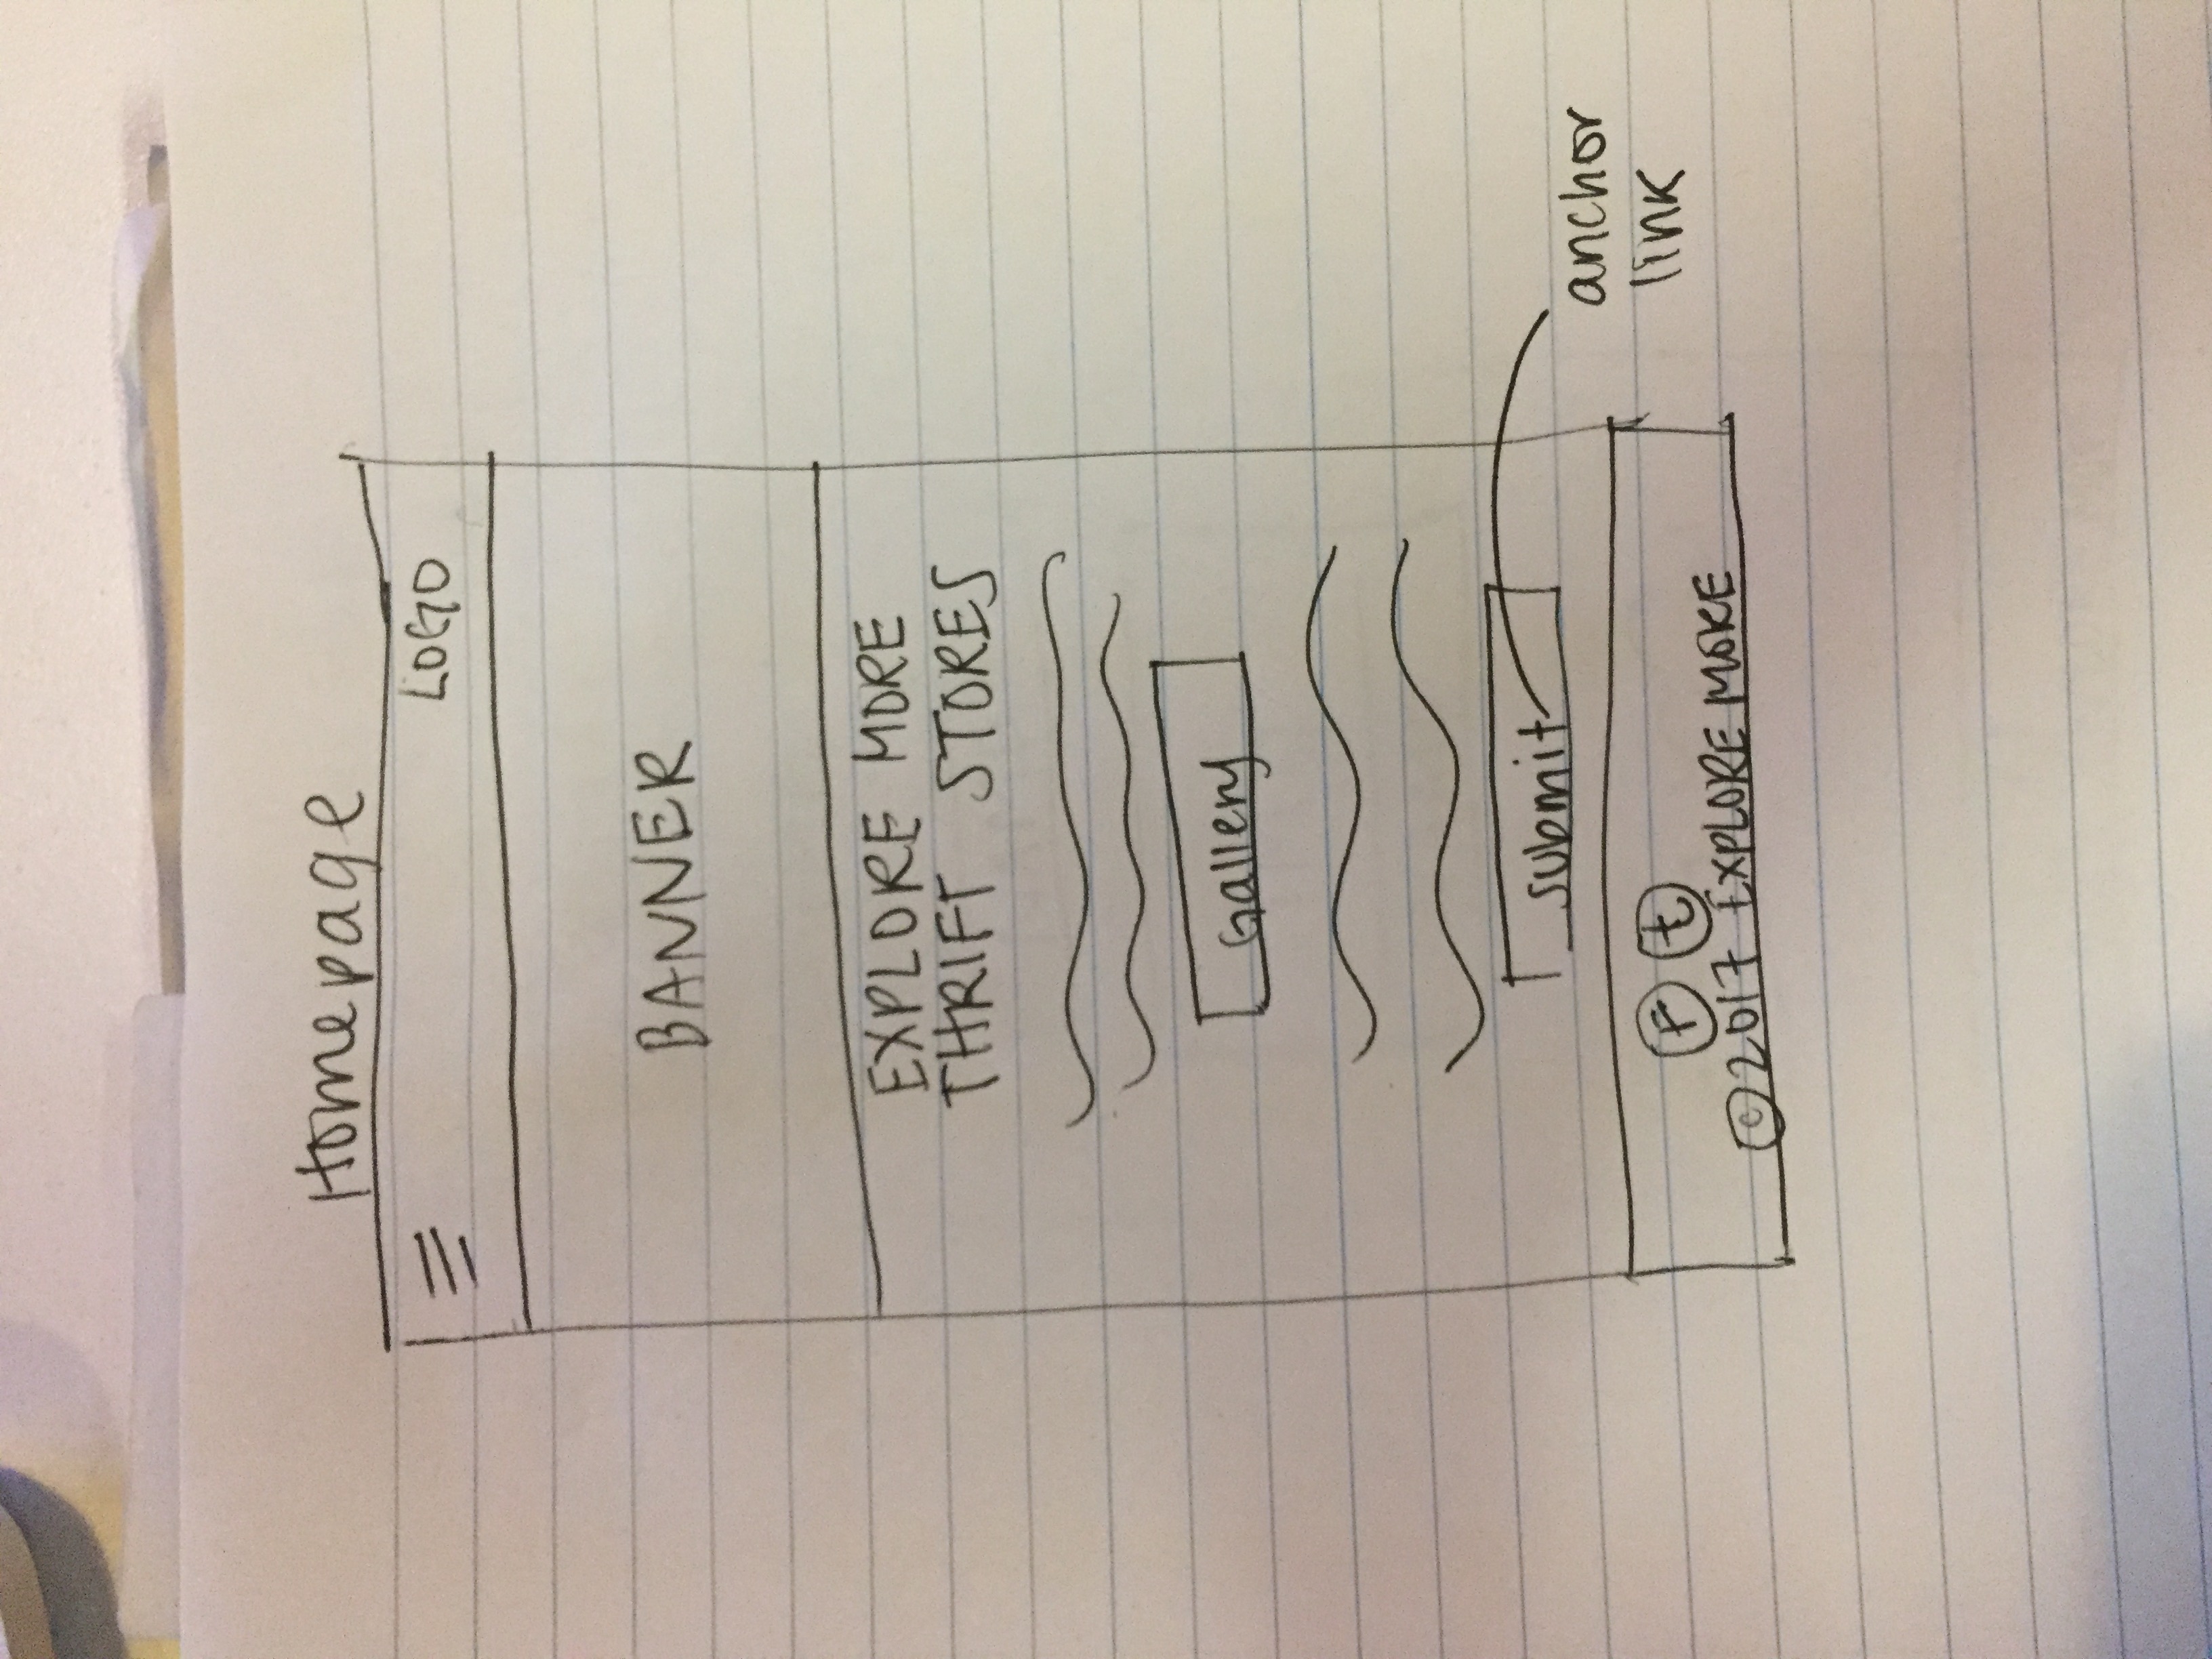 Homepage
LOGO
BANNER
EXPLORE MORE
THRIFT STORES
Gallery
submit
anchor
link
f t
© 2017 EXPLORE MORE